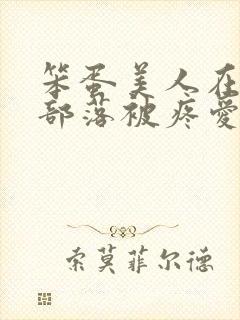 笨蛋美人在
部落被疼爱
索莫菲尔德